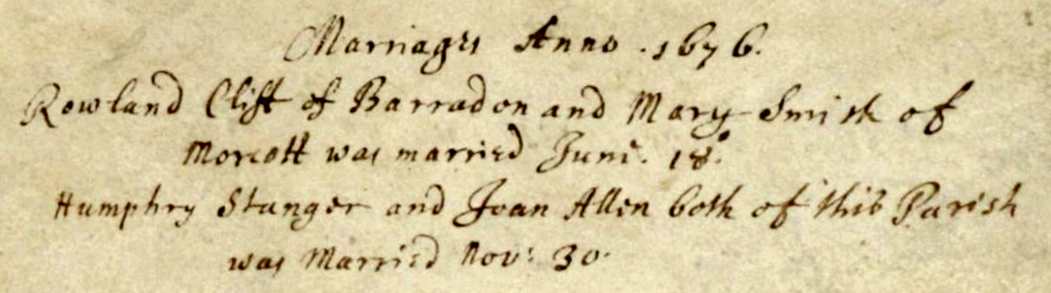 Marriages Anno .1676.
Rowland Clift of Barradon and Mary Smith of
Morcott was married June. 18º.
Humphry Stanger and Joan Allen both of this Parish
was Married Nov: 30.